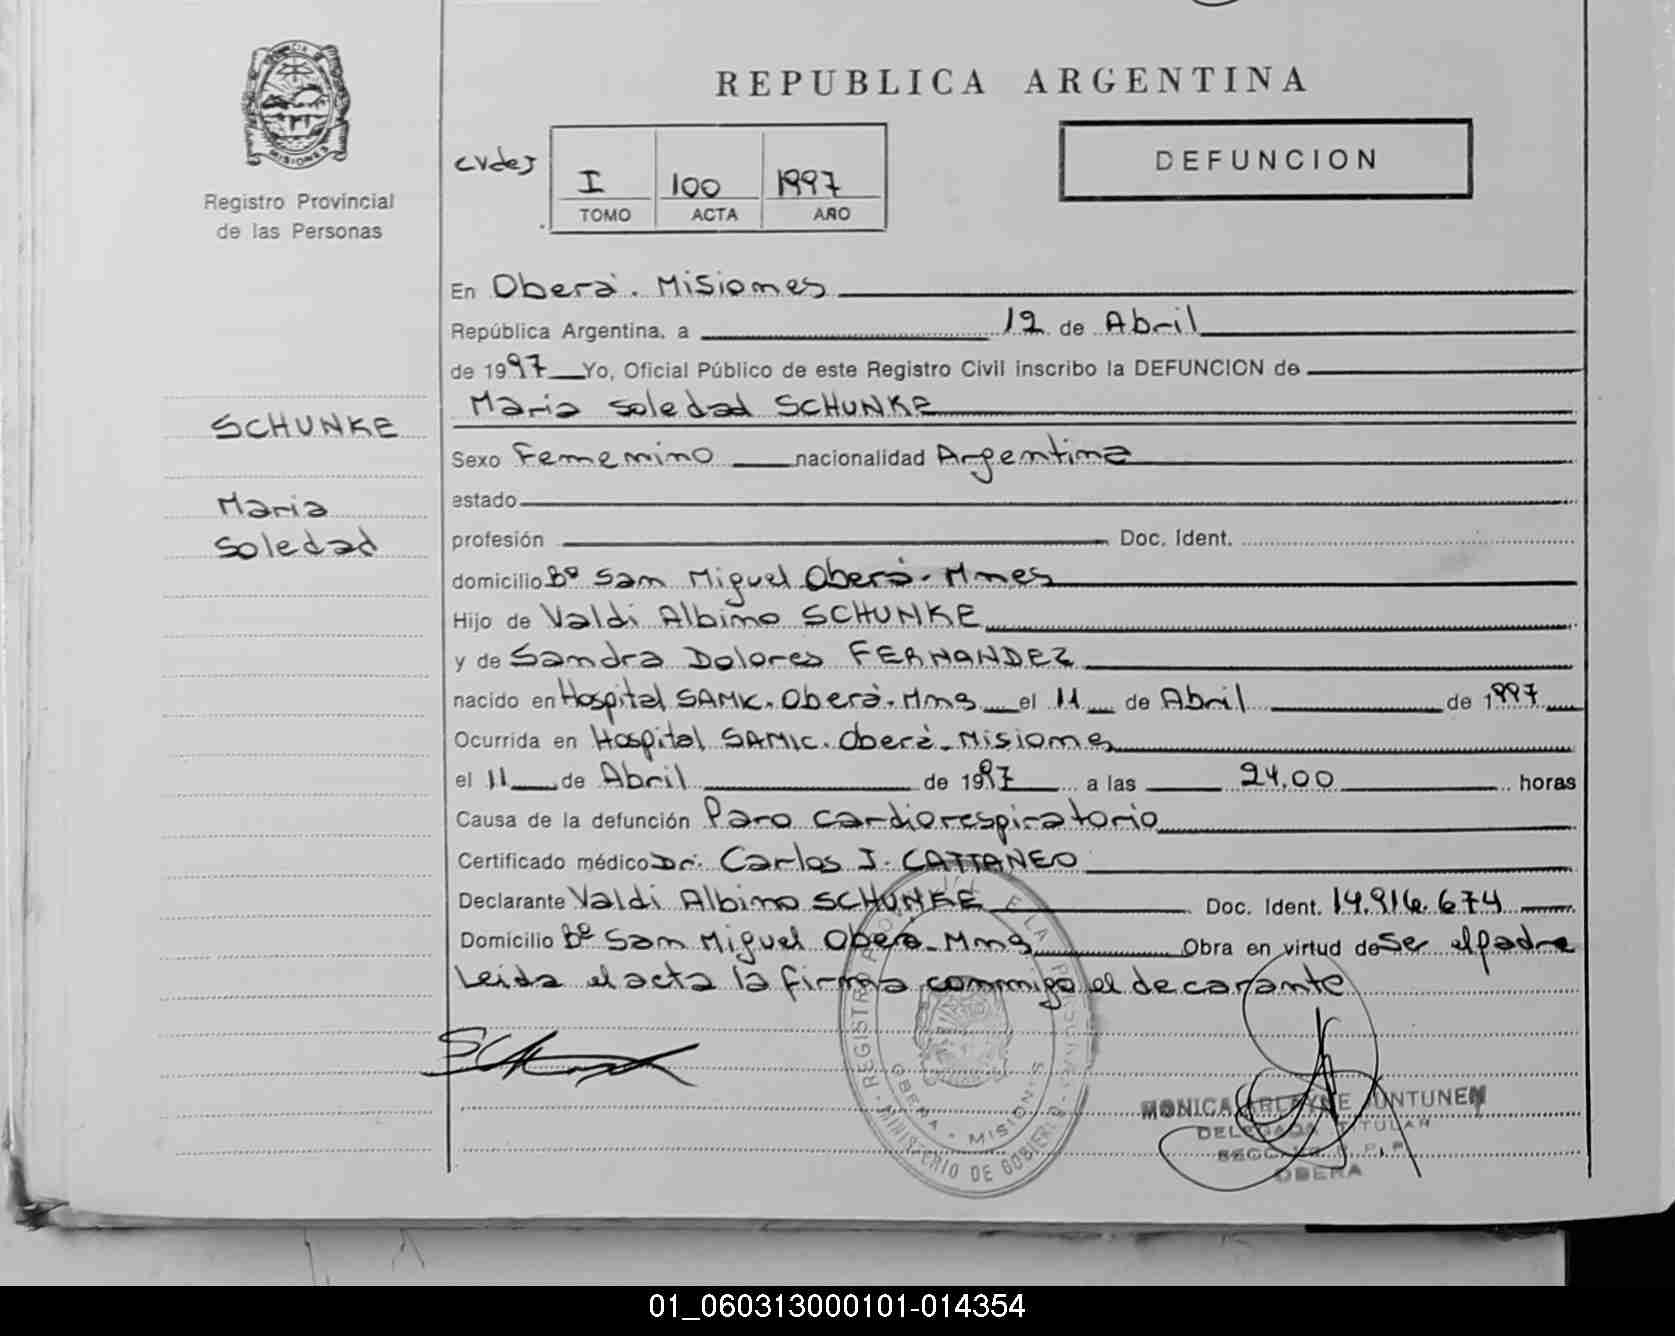 REPUBLICA ARGENTINA
PROVINCIA DE
MISIONES
Registro Provincial
de las Personas
I 100 1997
TOMO ACTA AÑO
DEFUNCION
En Oberá. Misiones
República Argentina, a 12 de Abril
de 1997 Yo, Oficial Público de este Registro Civil inscribo la DEFUNCION de
Maria Soledad SCHUNKE
SCHUNKE
Maria
Soledad
Sexo Femenino nacionalidad Argentina
estado
profesión Doc. Ident.
domicilio Bº San Miguel Oberá. Mnes
Hijo de Valdi Albino SCHUNKE
y de Sandra Dolores FERNANDEZ
nacido en Hospital SAMIC. Oberá. Mns el 11 de Abril de 1997
Ocurrida en Hospital SAMIC. Oberá. Misiones
el 11 de Abril de 1997 a las 24,00 horas
Causa de la defunción Paro cardiorespiratorio
Certificado médico Dr. Carlos J. CATTANEO
Declarante Valdi Albino SCHUNKE Doc. Ident. 14.916.674
Domicilio Bº San Miguel Oberá. Mns Obra en virtud de Ser el padre
Leida el acta la firma conmigo el decarante
REGISTRO PROVINCIAL DE LAS PERSONAS
OBERA - MISIONES
MINISTERIO DE GOBIERNO
MONICA ARLAYNE JUNTUNEN
DELEGADA TITULAR
OBERA
01_060313000101-014354